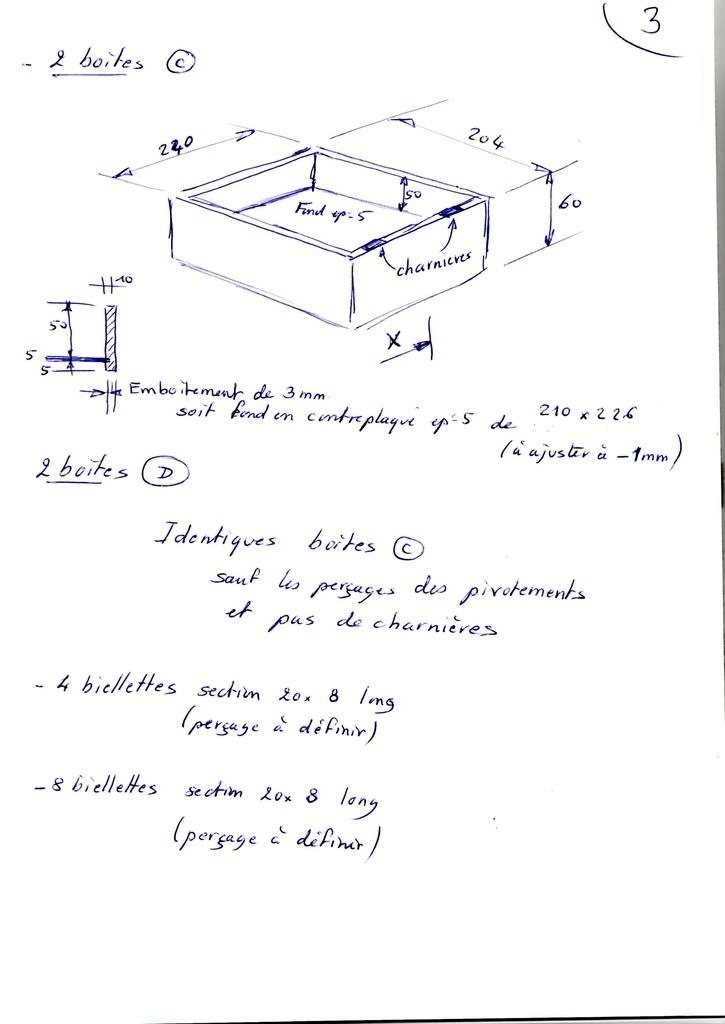 3
- 2 boites C
240
204
50
60
Fond ep=5
charnières
10
50
5
5
X
Emboitement de 3mm
soit fond en contreplaqué ep=5 de 210 x 226
(à ajuster à -1mm)
2 boites D
Identiques boites C
sauf les perçages des pivotements
et pas de charnières
- 4 biellettes section 20x 8 long
(perçage à définir)
- 8 biellettes section 20x 8 long
(perçage à définir)